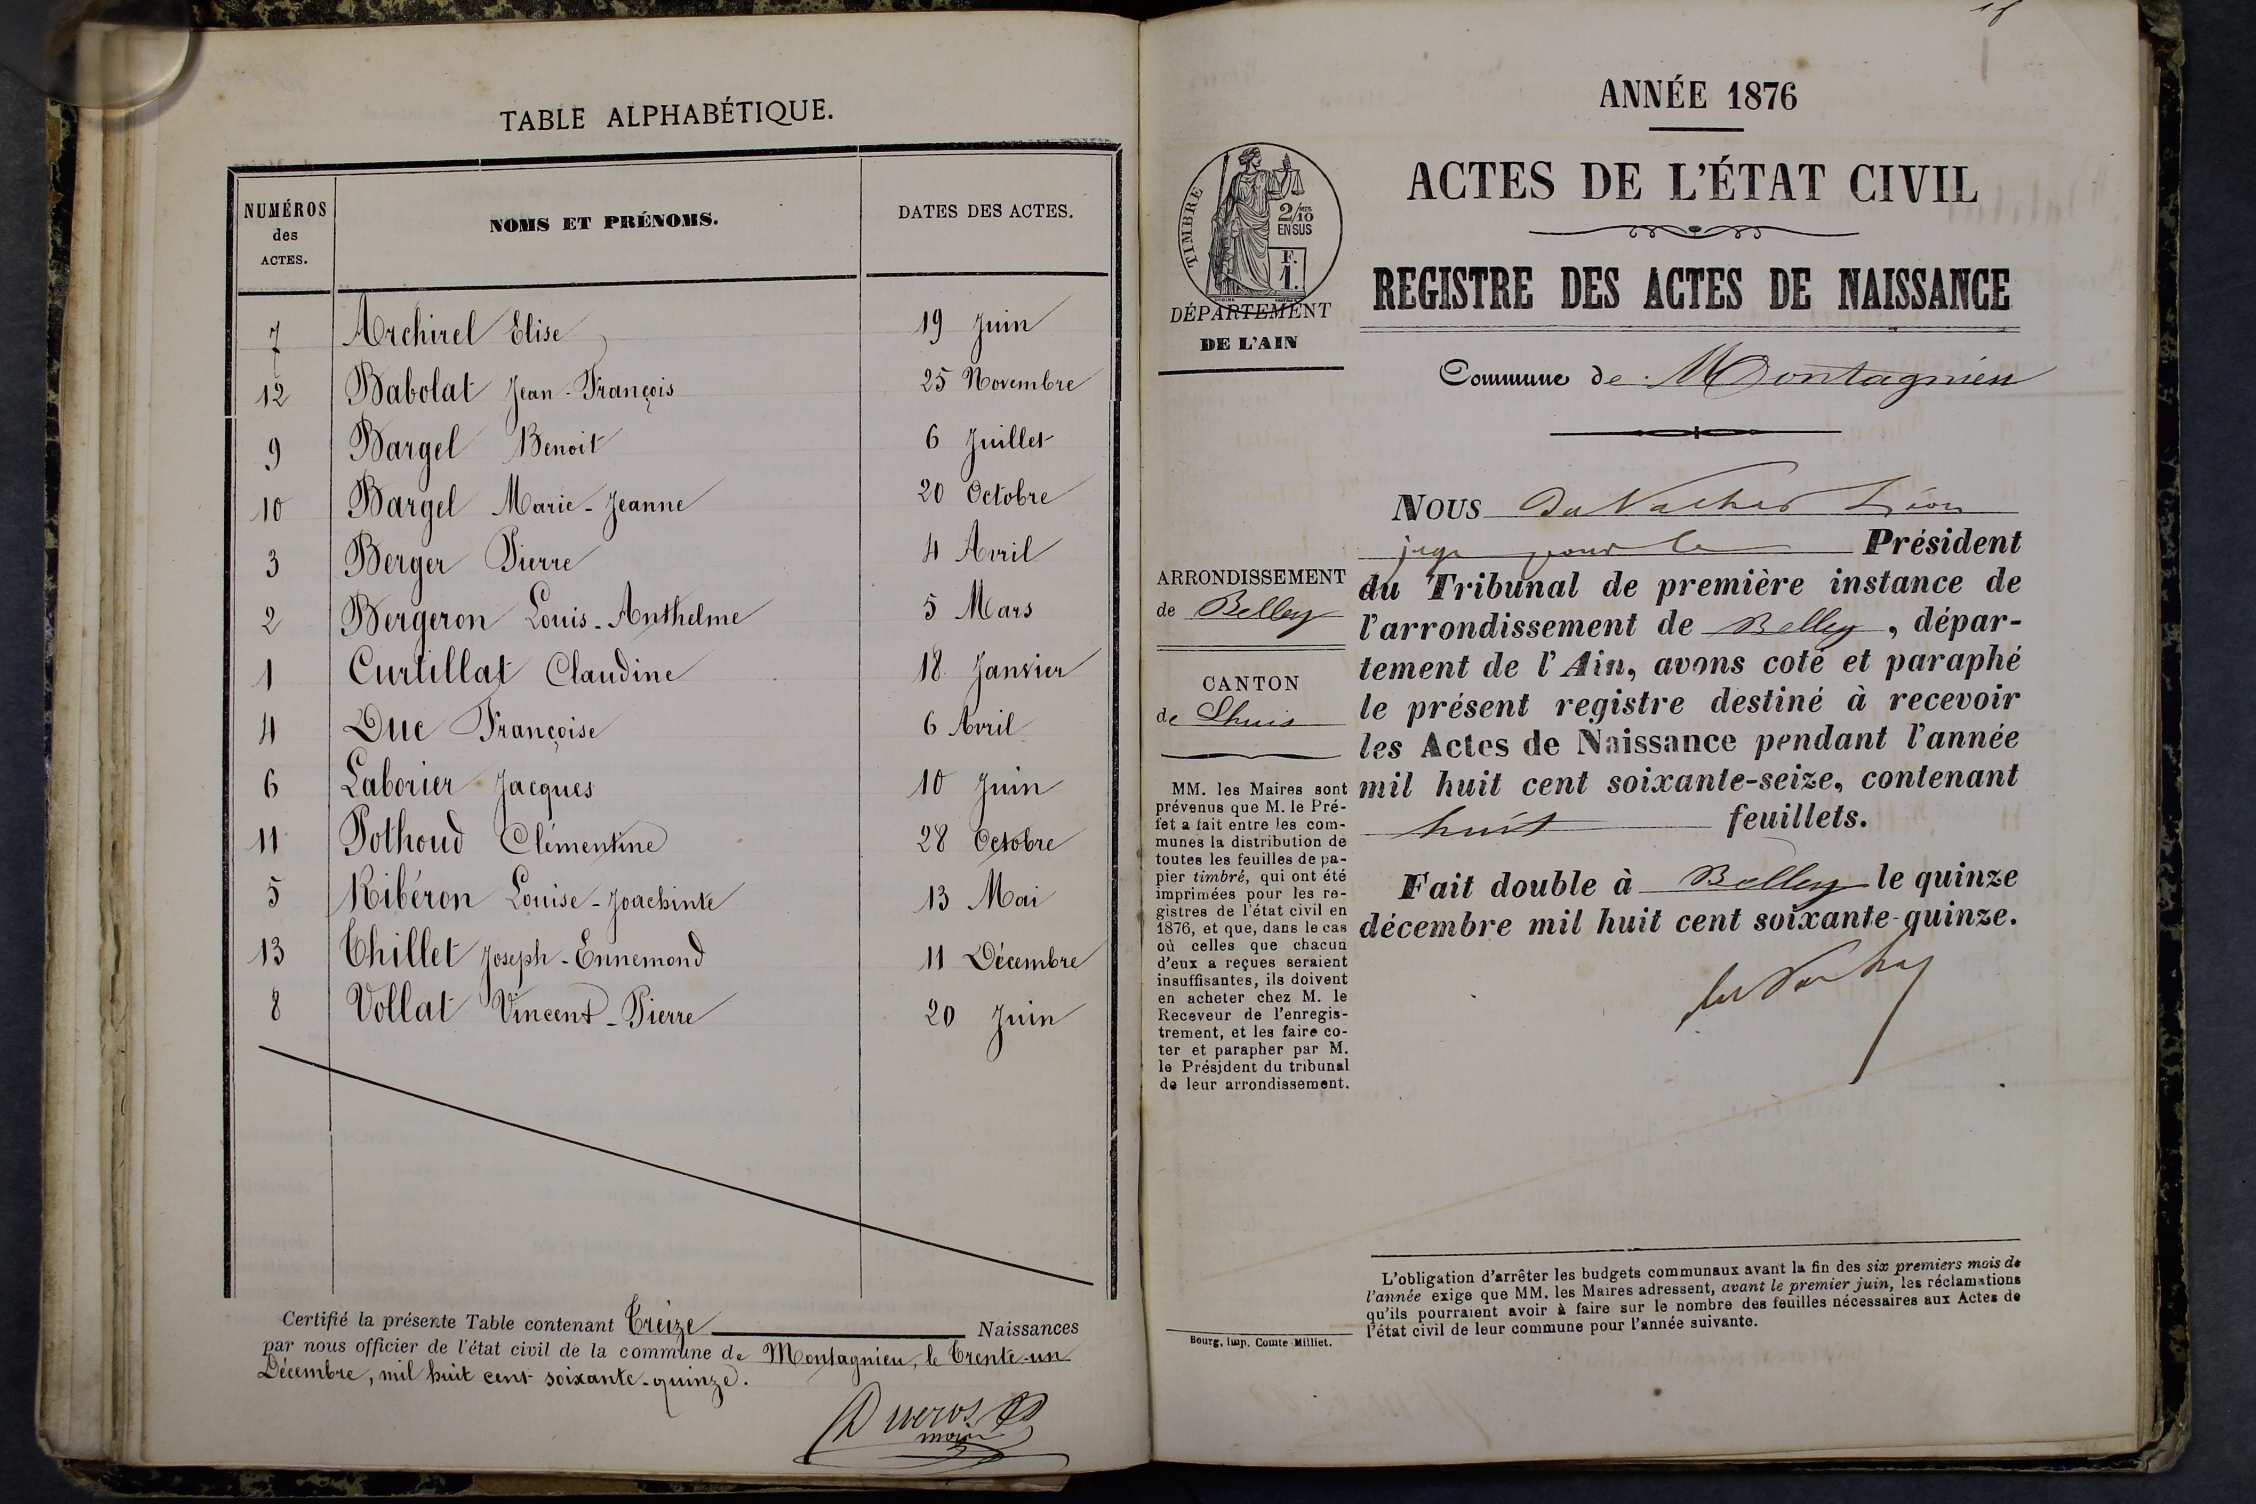 TABLE ALPHABÉTIQUE.
NUMÉROS des ACTES. NOMS ET PRÉNOMS. DATES DES ACTES.
7 Archirel Elise 19 Juin
12 Babolat Jean-François 25 Novembre
9 Bargel Benoit 6 Juillet
10 Bargel Marie-Jeanne 20 Octobre
3 Berger Pierre 4 Avril
2 Bergeron Louis-Anthelme 5 Mars
1 Curtillat Claudine 18 Janvier
4 Duc Françoise 6 Avril
6 Laborier Jacques 10 Juin
11 Pothoud Clémentine 28 Octobre
5 Ribéron Louise-Joachinte 13 Mai
13 Chillet Joseph-Ennemond 11 Décembre
8 Vollat Vincent-Pierre 20 Juin
Certifié la présente Table contenant Treize Naissances
par nous officier de l'état civil de la commune de Montagnieu, le Trente-un
Décembre, mil huit cent soixante-quinze.
maire
ANNÉE 1876
ACTES DE L'ÉTAT CIVIL
REGISTRE DES ACTES DE NAISSANCE
TIMBRE
2/10
EN SUS
F.
1.
DÉPARTEMENT
DE L'AIN
Commune de Montagnieu
ARRONDISSEMENT
de Belley
CANTON
de Lhuis
MM. les Maires sont
prévenus que M. le Pré-
fet a fait entre les com-
munes la distribution de
toutes les feuilles de pa-
pier timbré, qui ont été
imprimées pour les re-
gistres de l'état civil en
1876, et que, dans le cas
où celles que chacun
d'eux a reçues seraient
insuffisantes, ils doivent
en acheter chez M. le
Receveur de l'enregis-
trement, et les faire co-
ter et parapher par M.
le Président du tribunal
de leur arrondissement.
Bourg, imp. Comte-Milliet.
NOUS Léon
juge pour le Président
du Tribunal de première instance de
l'arrondissement de Belley, dépar-
tement de l'Ain, avons coté et paraphé
le présent registre destiné à recevoir
les Actes de Naissance pendant l'année
mil huit cent soixante-seize, contenant
huit feuillets.
Fait double à Belley le quinze
décembre mil huit cent soixante-quinze.
L'obligation d'arrêter les budgets communaux avant la fin des six premiers mois de
l'année exige que MM. les Maires adressent, avant le premier juin, les réclamations
qu'ils pourraient avoir à faire sur le nombre des feuilles nécessaires aux Actes de
l'état civil de leur commune pour l'année suivante.